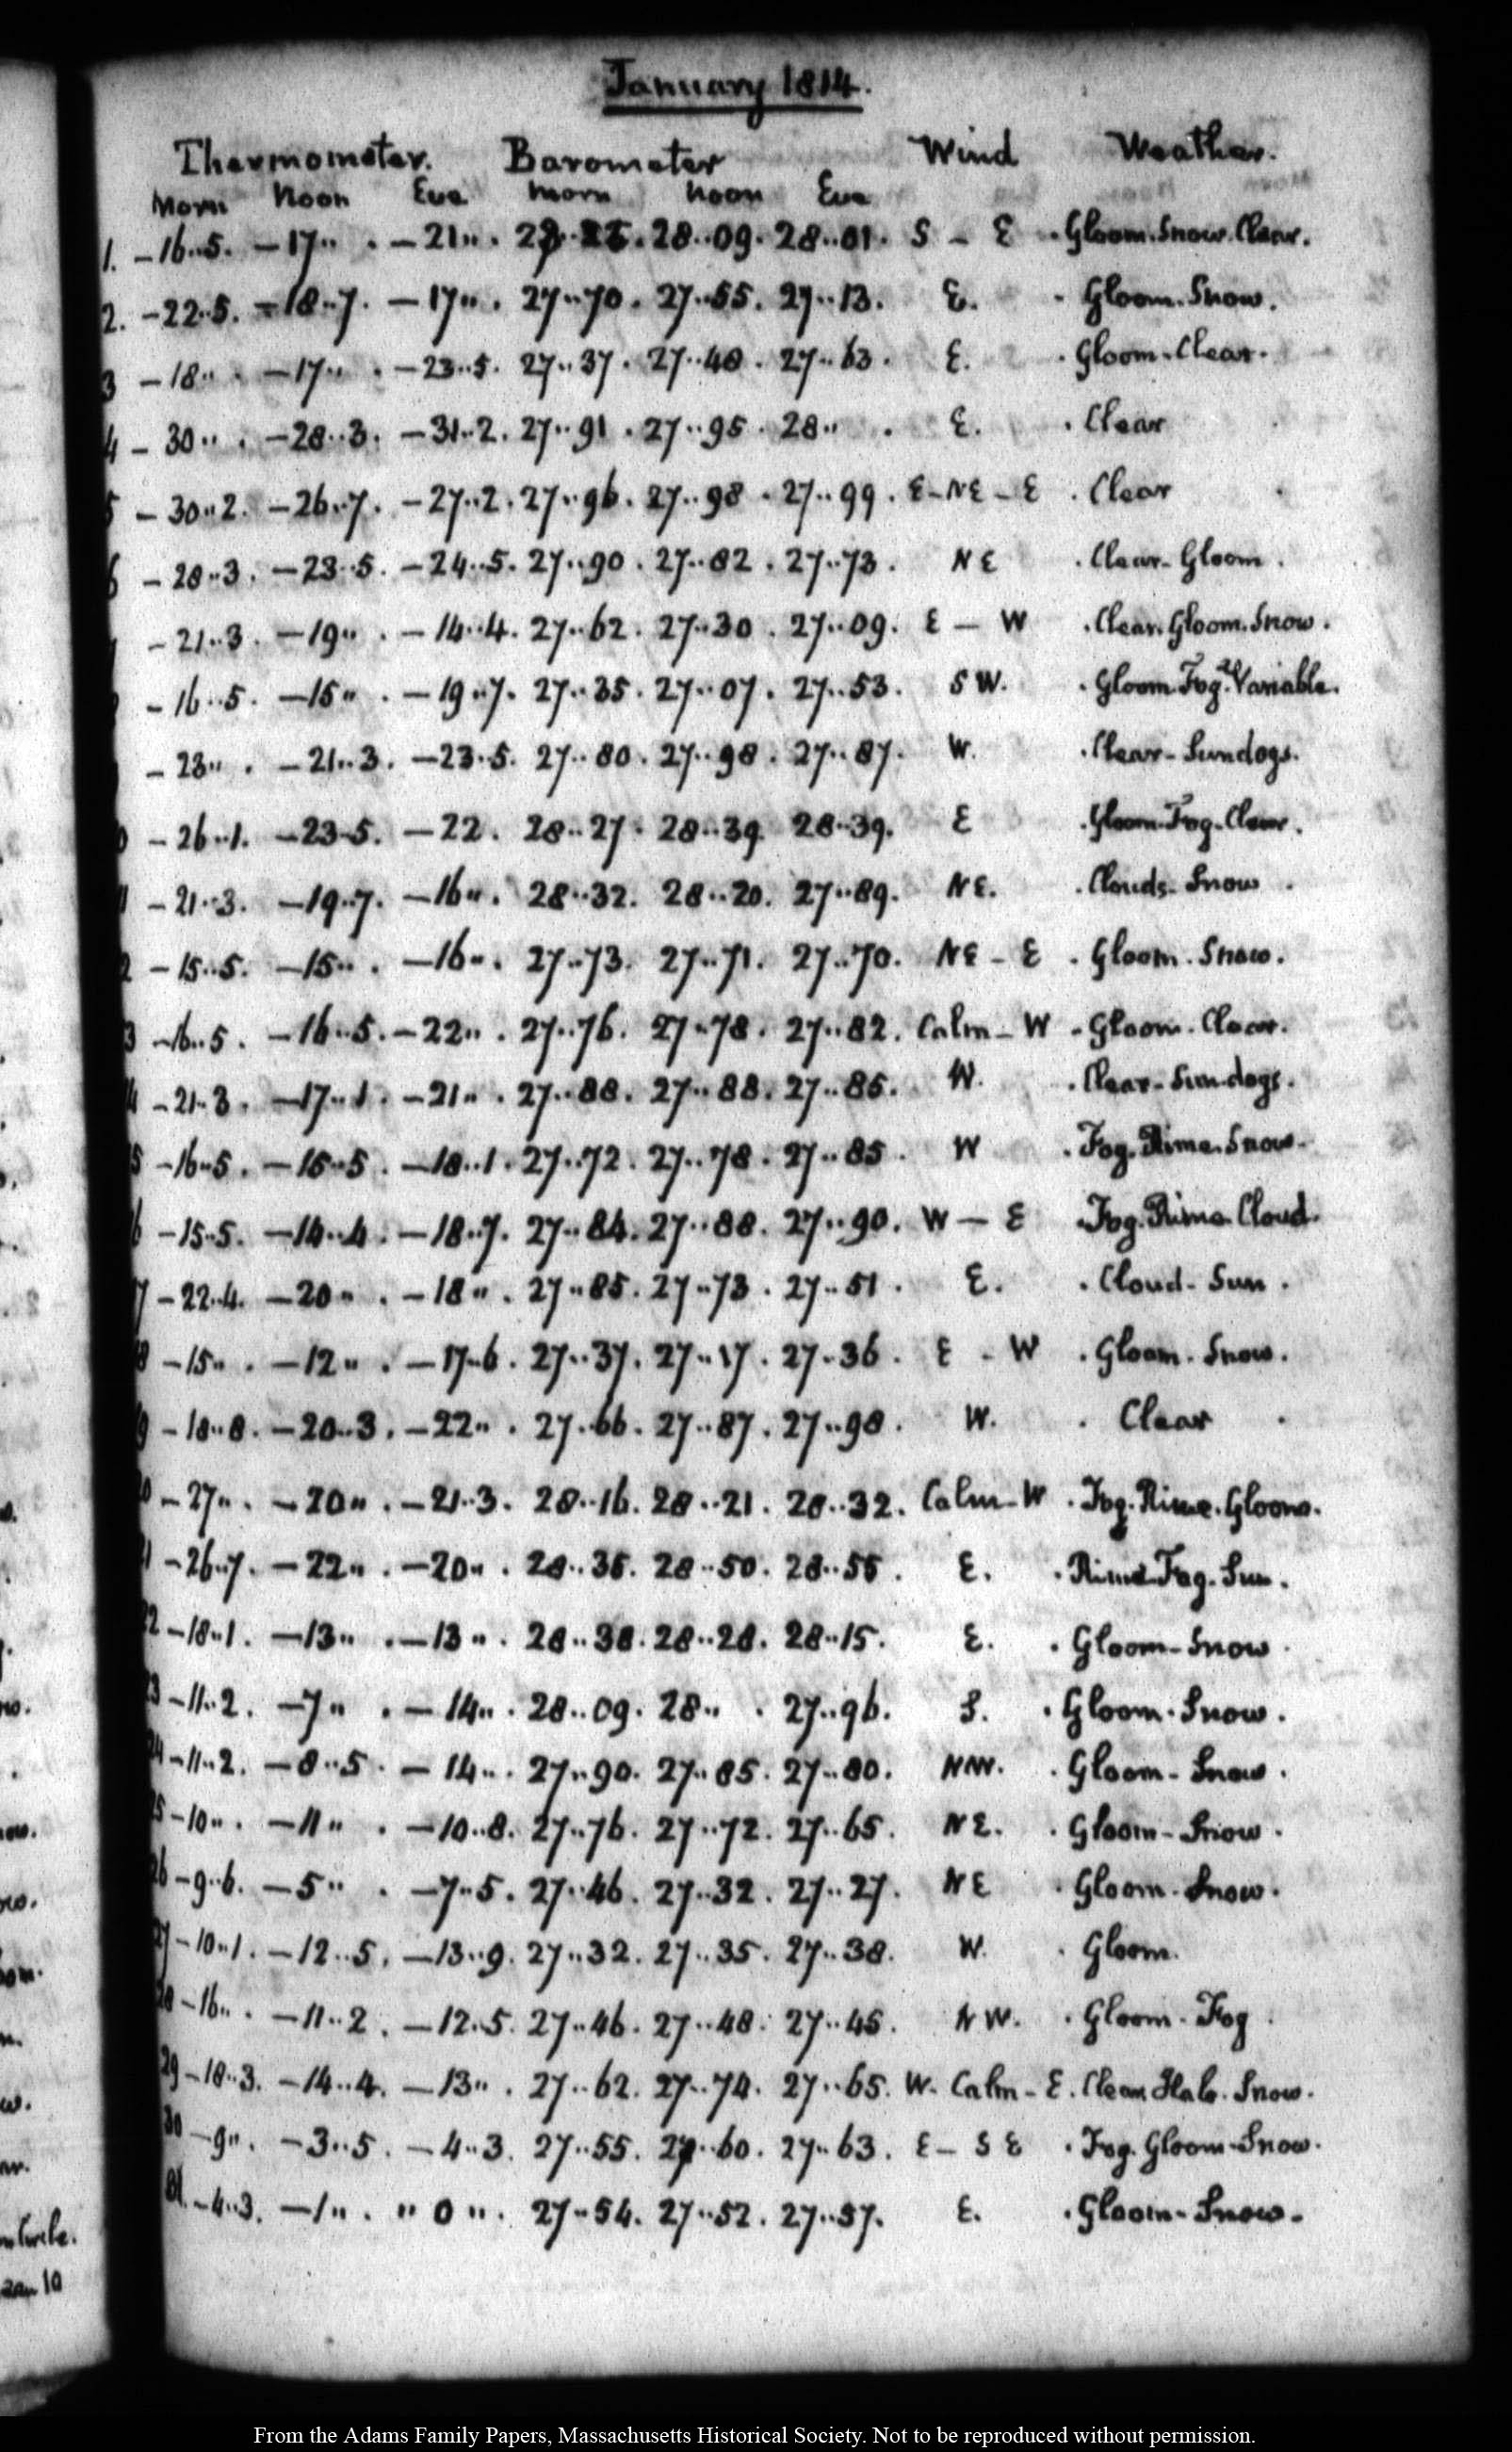 January 1814.
Thermometer. Barometer Wind Weather.
Morn Noon Eve Morn Noon Eve
1. -16..5. -17" . -21". 28.. 28..09. 28..01. S - E . Gloom. Snow. Clear.
2. -22..5. -18..7. -17". 27..70. 27..55. 27..13. E. . Gloom. Snow.
3 -18" . -17" . -23..5. 27..37. 27..48. 27..63. E. . Gloom. Clear.
4 -30" . -28..3. -31..2. 27..91. 27..95. 28" . E. . Clear
5 -30..2. -26..7. -27..2. 27..96. 27..98. 27..99. E-NE-E . Clear
6 -28..3. -23..5. -24..5. 27..90. 27..82. 27..73. NE . Clear-Gloom.
-21..3. -19" . -14..4. 27..62. 27..30. 27..09. E - W . Clear. Gloom. Snow.
-16..5. -15" . -19..7. 27..35. 27..07. 27..53. SW. . Gloom. Fog. Variable.
-23" . -21..3. -23..5. 27..80. 27..98. 27..87. W. . Clear-Sundogs.
0 -26..1. -23..5. -22. 28..27. 28..39. 28..39. E . Gloom. Fog. Clear.
1 -21..3. -19..7. -16". 28..32. 28..20. 27..89. NE. . Clouds. Snow.
2 -15..5. -15" . -16". 27..73. 27..71. 27..70. NE-E . Gloom. Snow.
3 -16..5. -16..5. -22". 27..76. 27..78. 27..82. Calm-W . Gloom. Clear.
4 -21..3. -17..1. -21". 27..88. 27..88. 27..85. W. . Clear-Sundogs.
5 -16..5. -15..5. -18..1. 27..72. 27..78. 27..85. W . Fog. Rime. Snow.
6 -15..5. -14..4. -18..7. 27..84. 27..88. 27..90. W - E . Fog. Rime. Cloud.
7 -22..4. -20" . -18". 27..85. 27..73. 27..51. E. . Cloud-Sun.
8 -15" . -12" . -17..6. 27..37. 27..17. 27..36. E - W . Gloom. Snow.
9 -18..8. -20..3. -22". 27..66. 27..87. 27..98. W. . Clear .
0 -27" . -20" . -21..3. 28..16. 28..21. 28..32. Calm-W . Fog. Rime. Gloom.
1 -26..7. -22" . -20". 28..35. 28..50. 28..55. E. . Rime. Fog. Sun.
22 -18..1. -13" . -13". 28..38. 28..28. 28..15. E. . Gloom-Snow
23 -11..2. -7" . -14". 28..09. 28" . 27..96. S. . Gloom. Snow.
24 -11..2. -8..5. -14". 27..90. 27..85. 27..80. NW. . Gloom-Snow.
25 -10" . -11" . -10..8. 27..76. 27..72. 27..65. NE. . Gloom-Snow.
26 -9..6. -5" . -7..5. 27..46. 27..32. 27..27. NE . Gloom. Snow.
27 -10..1. -12..5. -13..9. 27..32. 27..35. 27..38. W. . Gloom.
28 -16" . -11..2. -12..5. 27..46. 27..48. 27..45. NW. . Gloom. Fog.
29 -18..3. -14..4. -13". 27..62. 27..74. 27..65. W. Calm-E. Clear. Halo. Snow.
30 -9". -3..5. -4..3. 27..55. 27..60. 27..63. E-SE . Fog. Gloom-Snow.
31. -4..3. -1" . "0". 27..54. 27..52. 27..57. E. . Gloom-Snow.
From the Adams Family Papers, Massachusetts Historical Society. Not to be reproduced without permission.